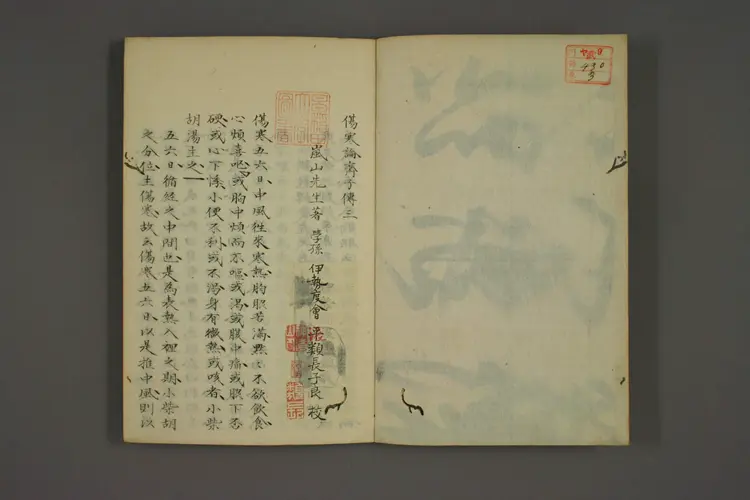 490
傷寒論齊子傳三
嵐山先生著 學孫 伊勢度會 梁顈長子良 校
傷寒五六日中風往來寒熱胸脇苦滿默々不欲飲食
心煩喜嘔或胸中煩而不嘔或渴或腹中痛或脇下否
硬或心下悸小便不利或不渴身有微熱或咳者小柴
胡湯主之
五六日循經之中間也是為表熱入裡之期小柴胡
之分位主傷寒故云傷寒五六日以是推中風則以